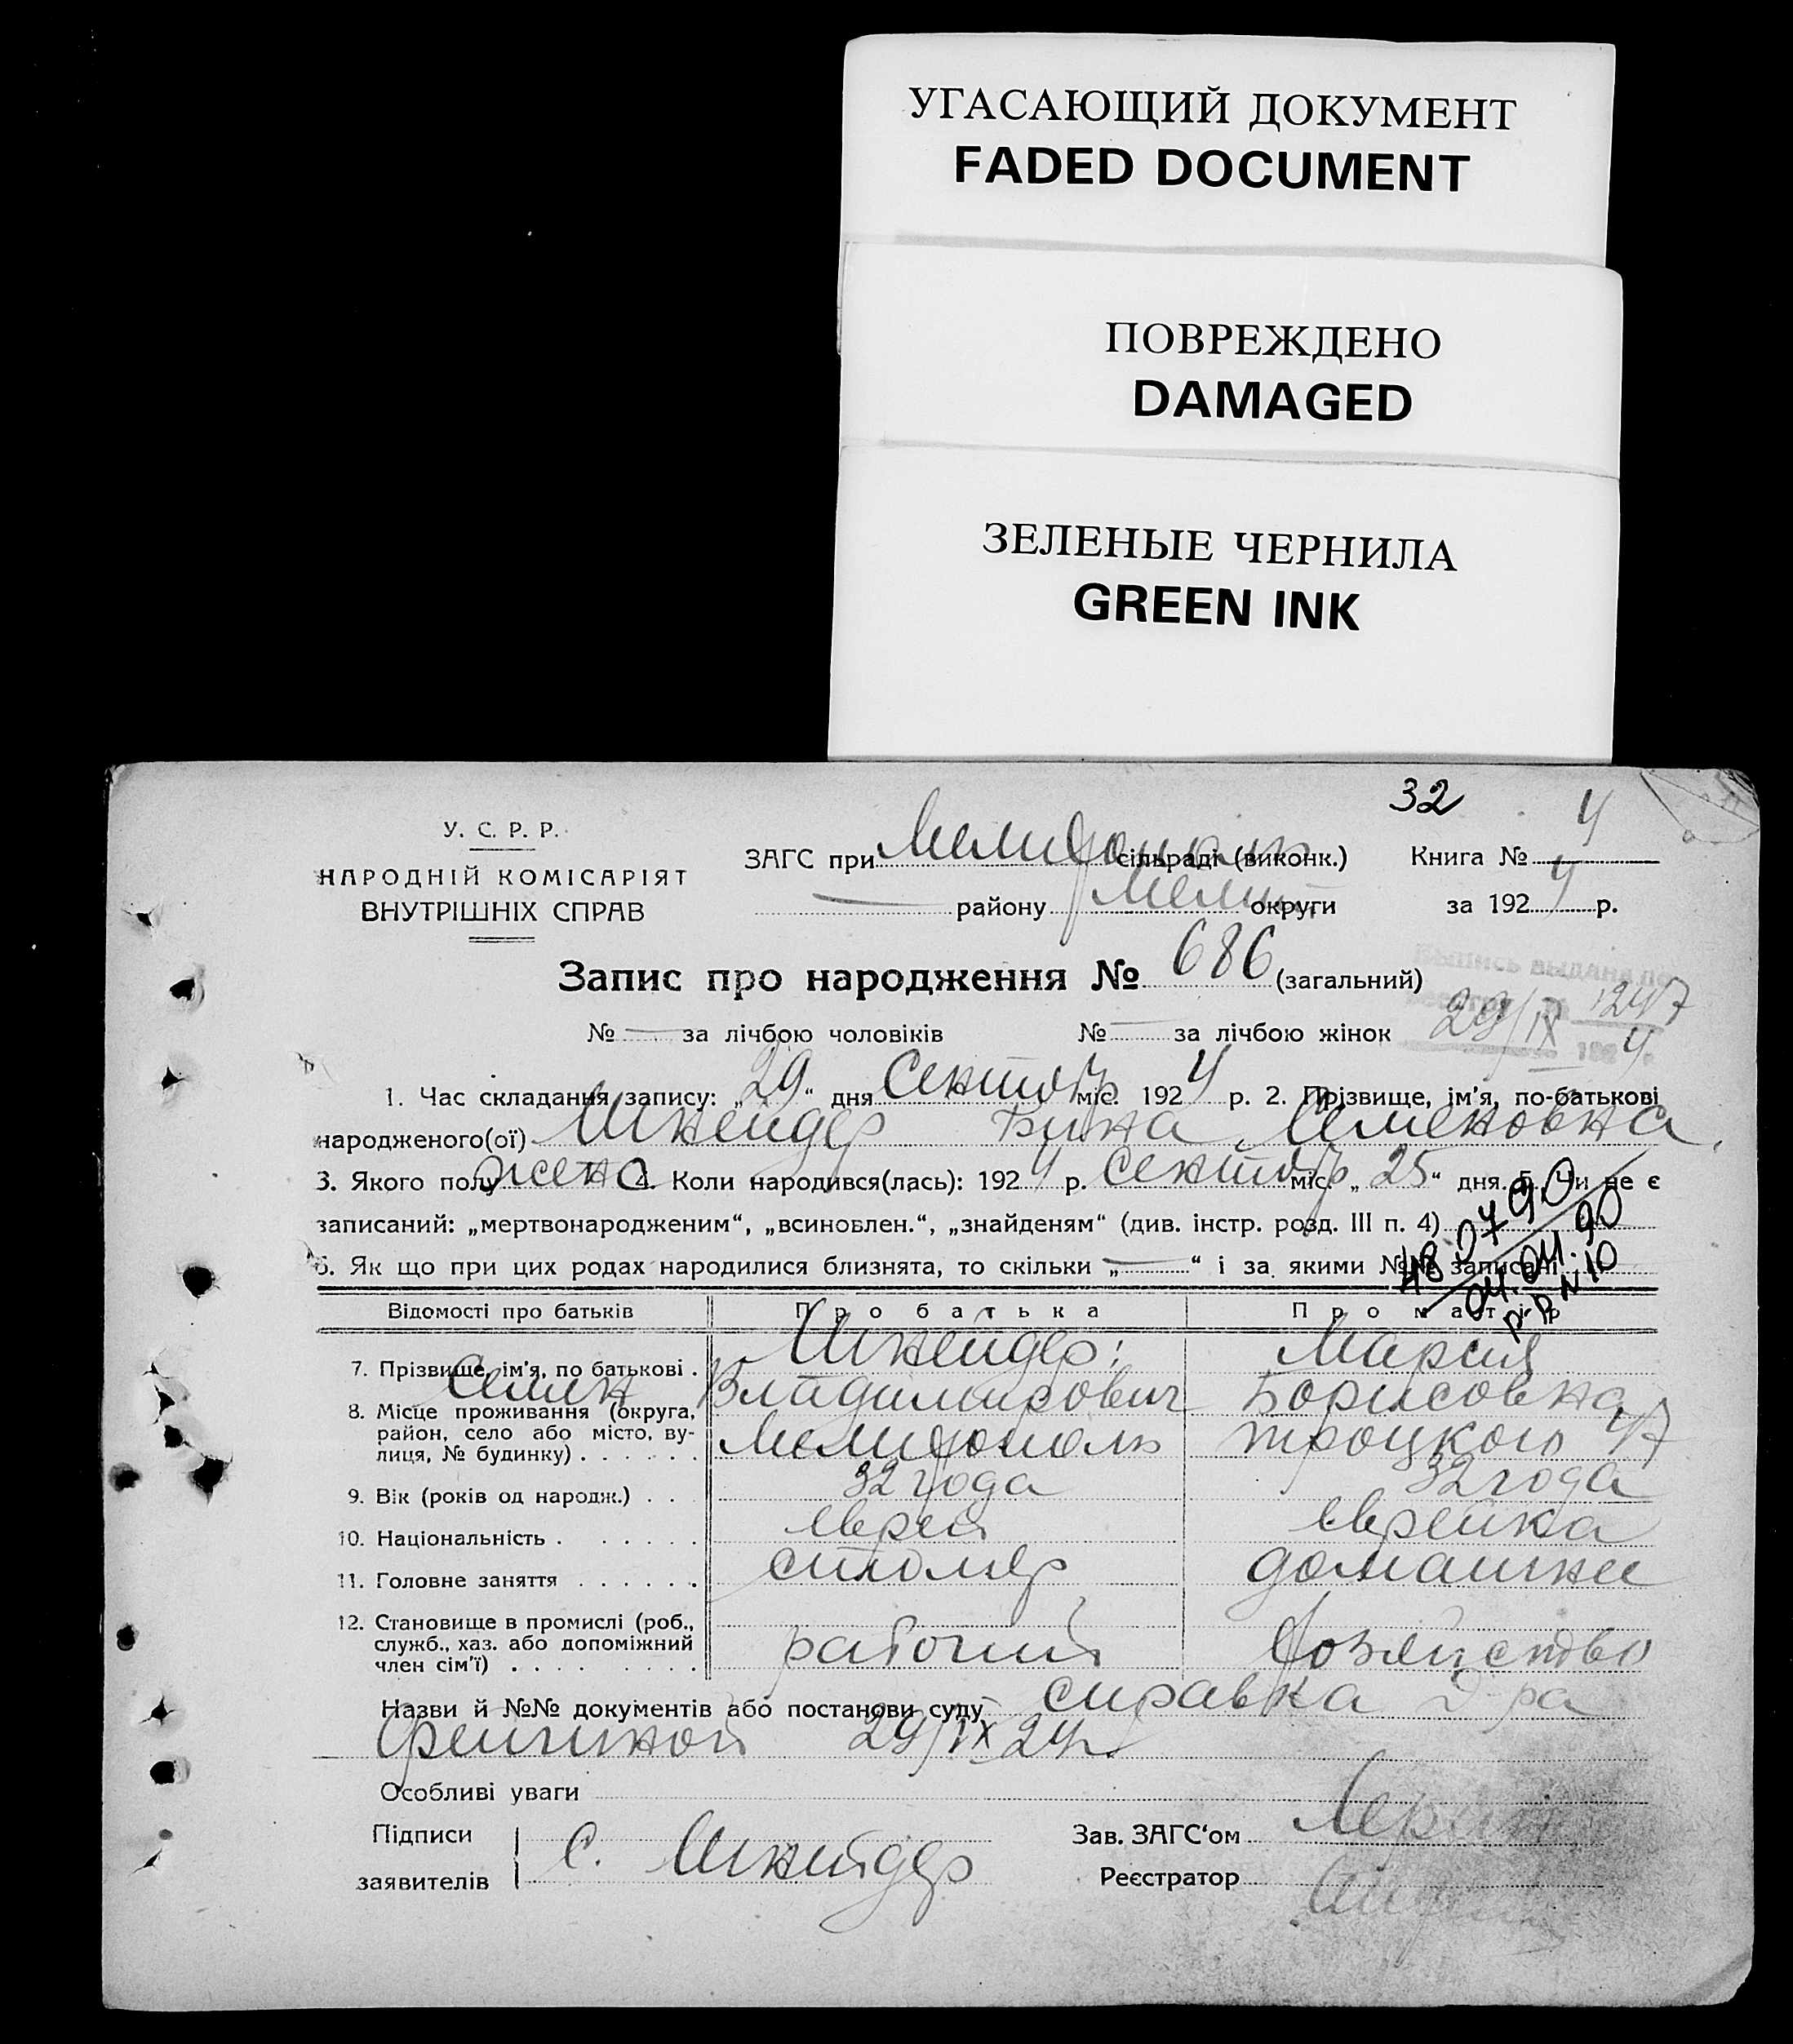 УГАСАЮЩИЙ ДОКУМЕНТ
FADED DOCUMENT
ПОВРЕЖДЕНО
DAMAGED
ЗЕЛЕНЫЕ ЧЕРНИЛА
GREEN INK
32
У. С. Р. Р.
НАРОДНІЙ КОМІСАРІЯТ
ВНУТРІШНІХ СПРАВ
ЗАГС при Мелитополь сільраді (виконк.) Книга № 4
— району Мелит округи за 1924 р.
Запис про народження № 686 (загальний)
Выпись выдана по
1247
29/IX 1924 г.
№ — за лічбою чоловіків № — за лічбою жінок
1. Час складання запису: „29“ дня Сентябр міс. 1924 р. 2. Прізвище, ім'я, по-батькові
народженого(ої) Шнейдер Бина Семеновна
3. Якого полу жен 4. Коли народився(лась): 1924 р. Сентябр міс. „25“ дня. 5. Чи не є
записаний: „мертвонародженим“, „всиноблен.“, „знайденям“ (див. інстр. розд. III п. 4)
6. Як що при цих родах народилися близнята, то скільки „—“ і за якими №№ записані
04.04.90
р.р N 10
Відомості про батьків Про батька Про матір
7. Прізвище, ім'я, по батькові . Шнейдер Мария
Семен Владимирович Борисовна
8. Місце проживання (округа, район, село або місто, вулиця, № будинку) . . . . . . Мелитополь Троцкого 47
9. Вік (років од народж.) . . 32 года 32 года
10. Національність . . . . . . еврей еврейка
11. Головне заняття . . . . . . столяр домашнее
12. Становище в промислі (роб., служб., хаз. або допоміжний член сім'ї) . . . . . . . . рабочий хозяйство
Назви й №№ документів або постанови суду справка д-ра
29/IX 24 г.
Особливі уваги
Підписи заявителів С. Шнейдер
Зав. ЗАГС'ом
Реєстратор